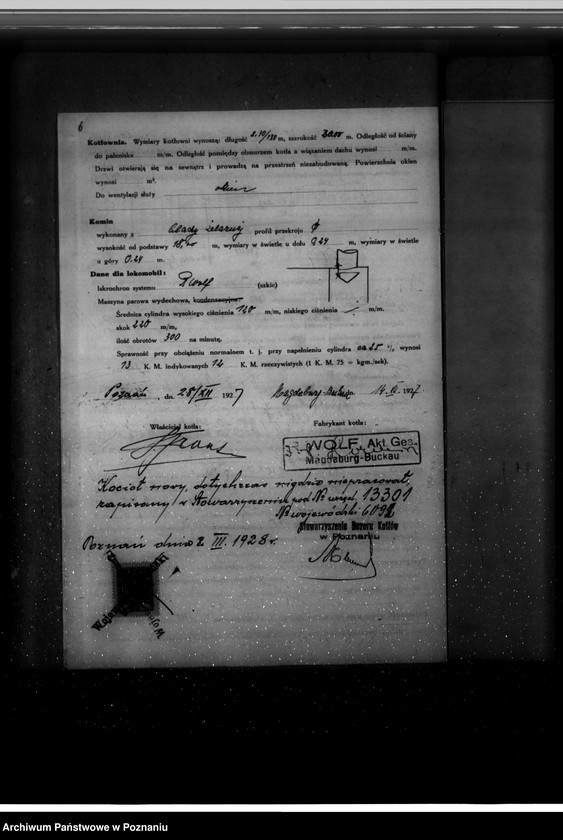 6
Kotłownia. Wymiary kotłowni wynoszą: długość m, szerokość m. Odległość od ściany
do paleniska m/m. Odległość pomiędzy obmurzem kotła a wiązaniem dachu wynosi m/m.
Drzwi otwierają się na zewnątrz i prowadzą na przestrzeń niezabudowaną. Powierzchnia okien
wynosi m².
Do wentylacji służy
Komin
wykonany z blachy żelaznej profil przekroju
wysokość od podstawy m, wymiary w świetle u dołu 0.24 m, wymiary w świetle
u góry 0.24 m.
Dane dla lokomobil:
Iskrochron systemu R Wolf (szkic)
Maszyna parowa wydechowa, kondensacyjna
Średnica cylindra wysokiego ciśnienia 120 m/m, niskiego ciśnienia m/m.
skok 220 m/m,
ilość obrotów 300 na minutę.
Sprawność przy obciążeniu normalnem t. j. przy napełnieniu cylindra ca 25 %, wynosi
13 K. M. indykowanych 12 K. M. rzeczywistych (1 K. M. 75 = kgm./sek).
Poznań, dn. 28/XII 1927 Magdeburg-Buckau 1927
Właściciel kotła: Fabrykant kotła:
R. WOLF Akt. Ges.
Magdeburg-Buckau
Kocioł nowy, dotychczas nigdzie niepracował,
zapisany w Stowarzyszeniu pod № urzęd. 13301
№ wojewódzki
Stowarzyszenie Dozoru Kotłów
w Poznaniu
Poznań dnia 2 III. 1928 r.
Archiwum Państwowe w Poznaniu